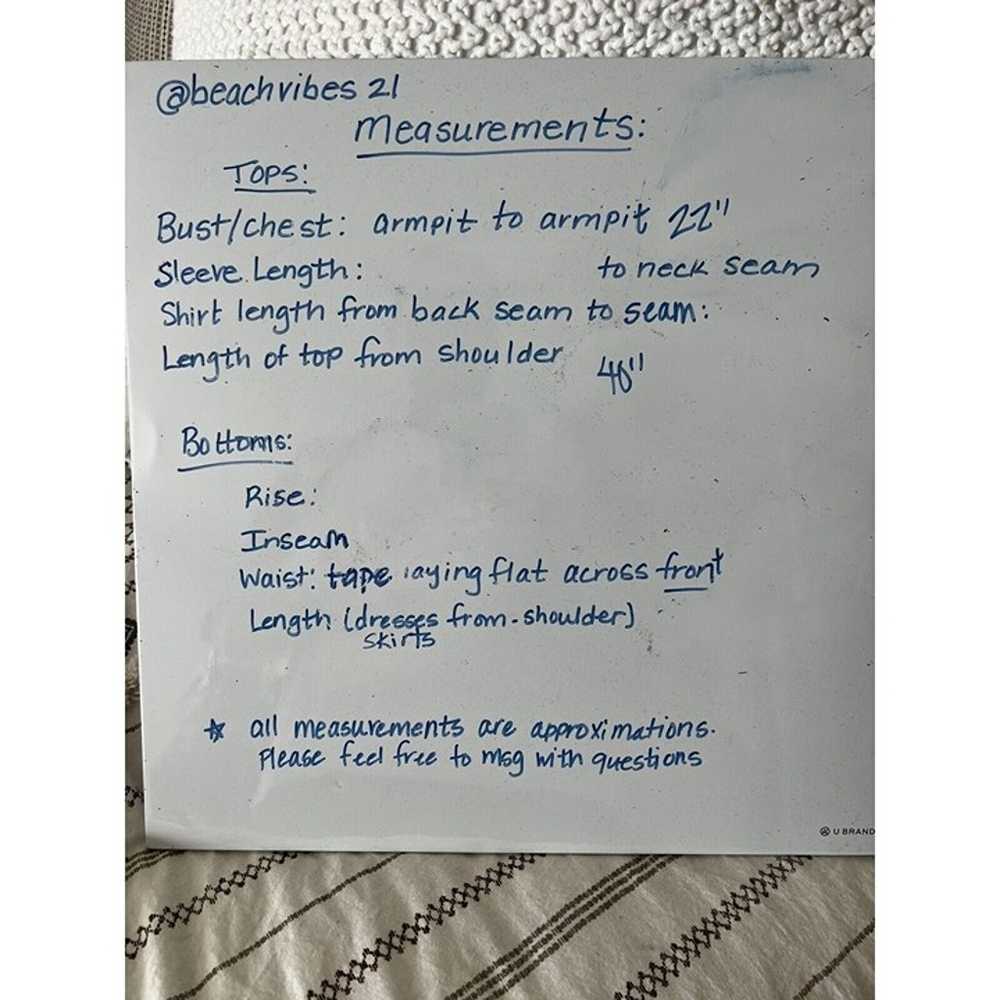 @beachvibes 21
Measurements:
TOPS:
Bust/chest: armpit to armpit 22"
Sleeve Length: to neck seam
Shirt length from back seam to seam:
Length of top from shoulder
Bottoms:
Rise:
Inseam
Waist: tape laying flat across front
Length (dresses from shoulder)
skirts
☆ all measurements are approximations.
Please feel free to msg with questions
U BRAND